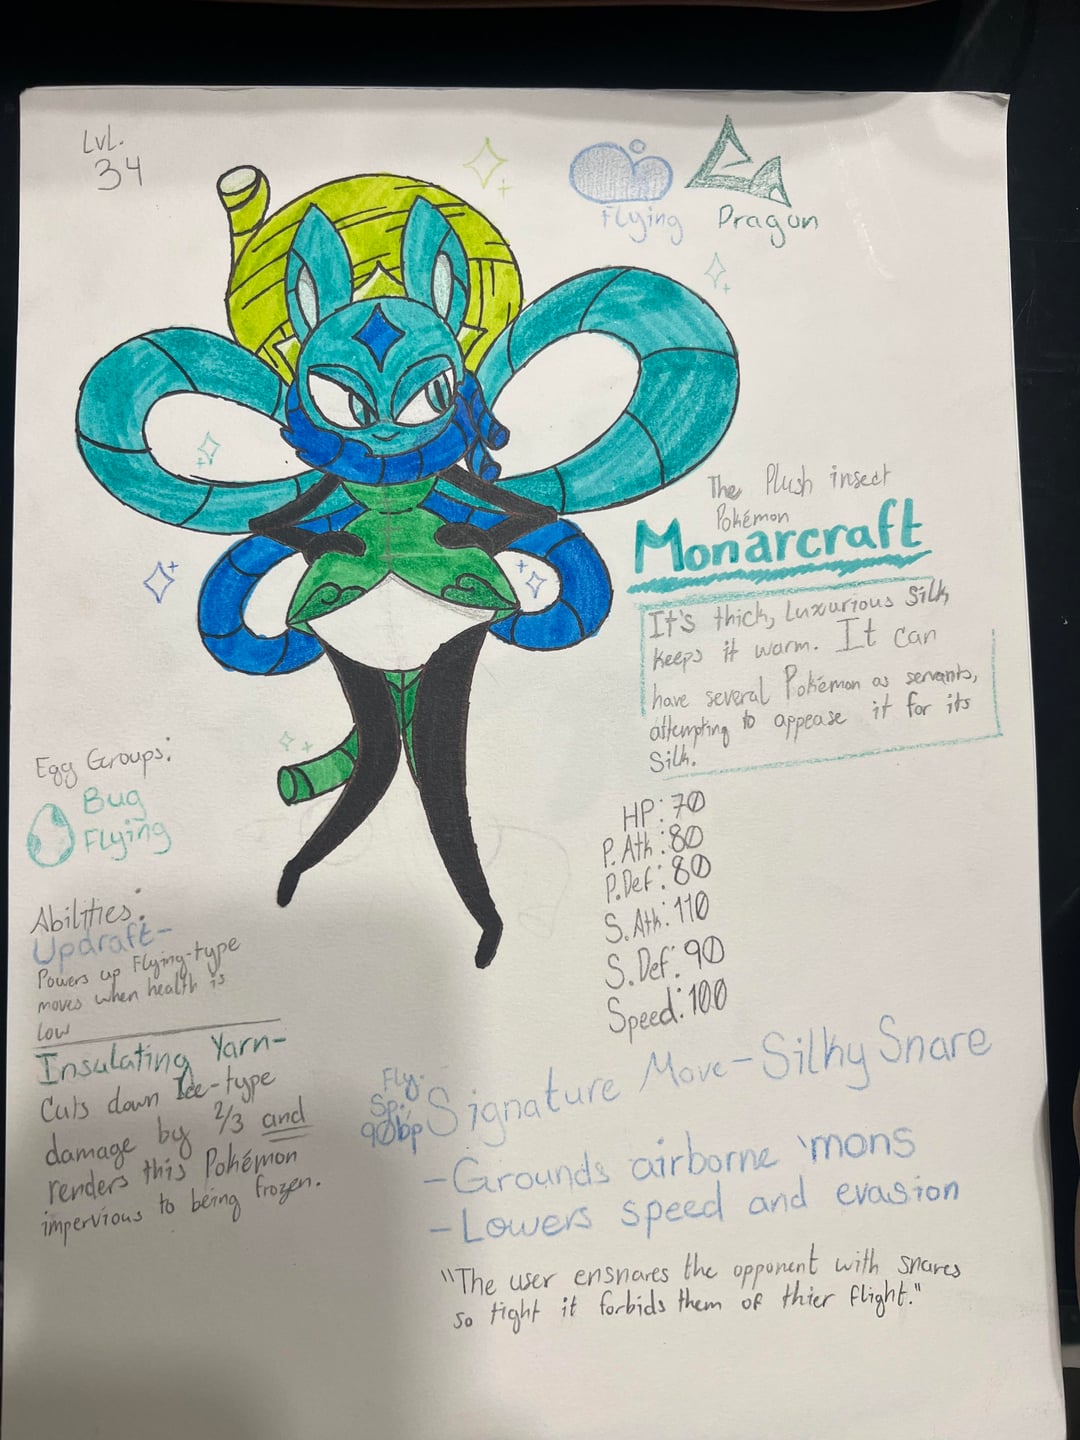 LVL.
34
Flying
Dragon
The Plush insect
Pokémon
Monarcraft
It's thick, Luxurious Silk,
keeps it warm. It can
have several Pokémon as servants,
attempting to appease it for its
Silk.
Egg Groups:
Bug
Flying
HP: 70
P. Atk: 80
P. Def: 80
S. Atk: 110
S. Def: 90
Speed: 100
Abilities:
Updraft-
Powers up Flying-type
moves when health is
low
Insulating Yarn-
Cuts down Ice-type
damage by 2/3 and
renders this Pokémon
impervious to being frozen.
Fly.
Sp.
90bp
Signature Move - Silky Snare
- Grounds airborne 'mons
- Lowers speed and evasion
"The user ensnares the opponent with snares
so tight it forbids them of thier flight."